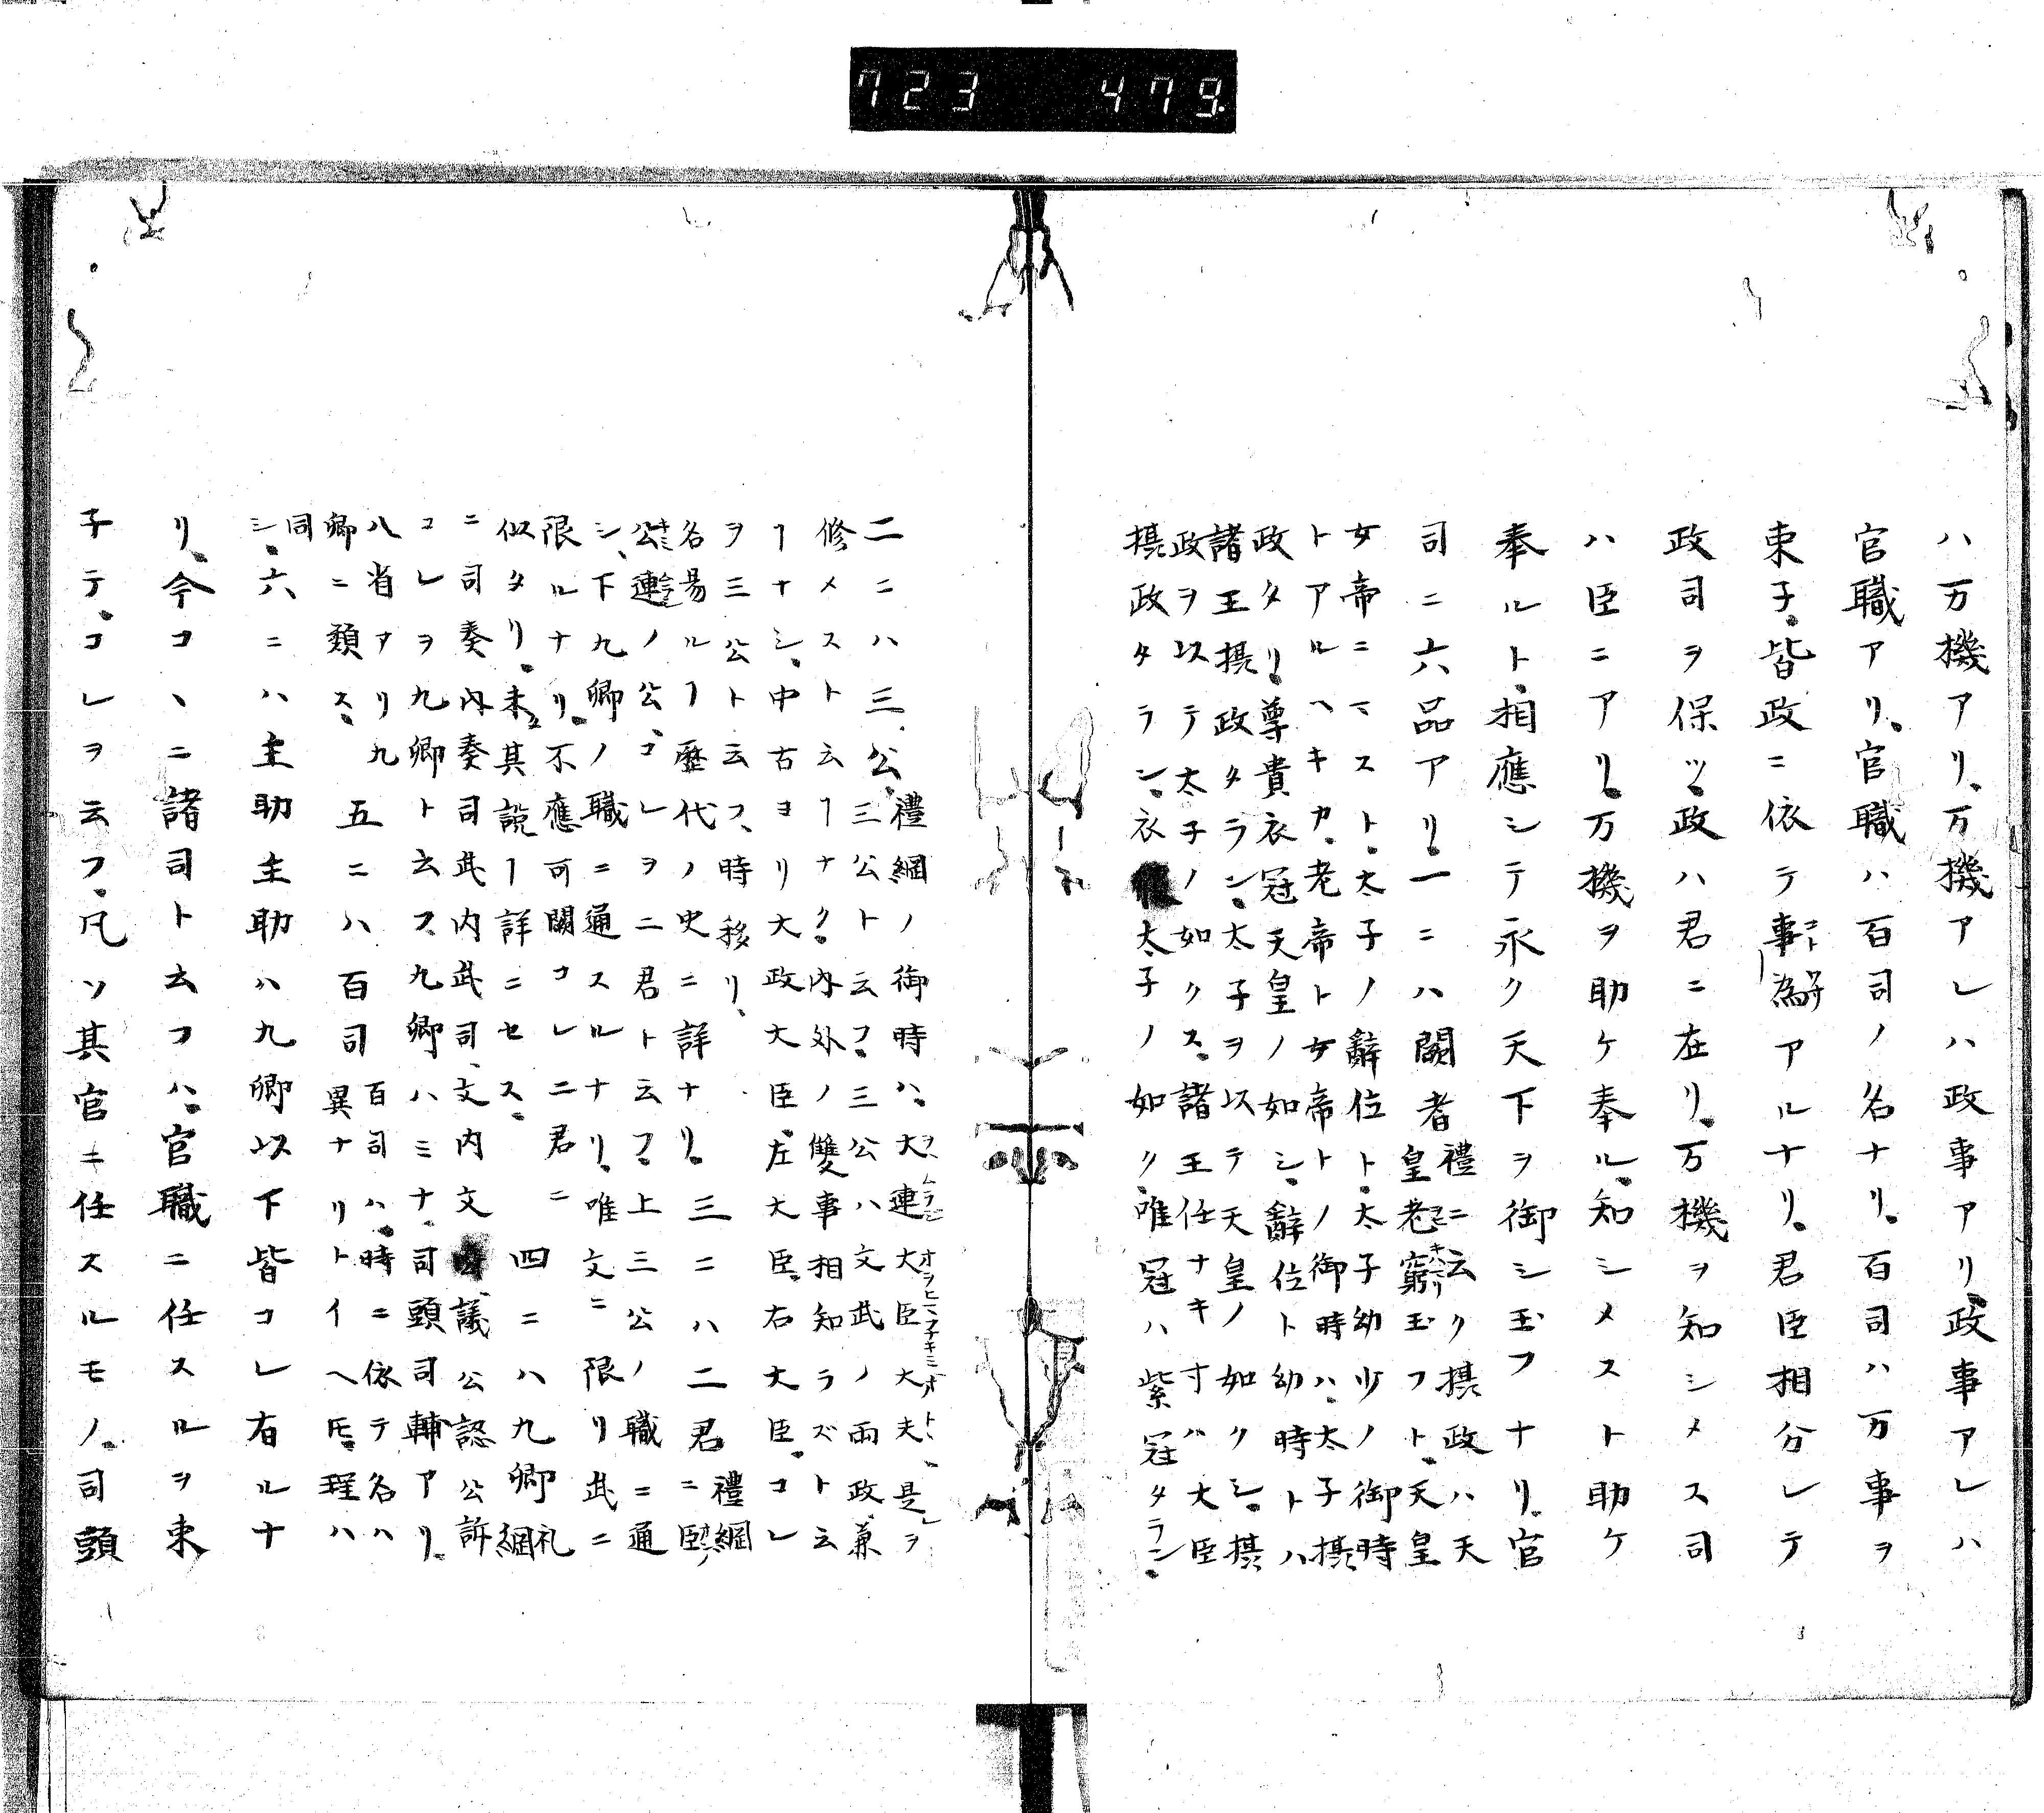 723 479.
ハ万機アリ。万機アレハ政事アリ。政事アレハ
官職アリ。官職ハ百司ノ名ナリ。百司ハ万事ヲ
束子。皆政ニ依テ事為アルナリ。君臣相分レテ
政司ヲ保ツ。政ハ君ニ在リ。万機ヲ知シメス司
ハ臣ニアリ。万機ヲ助ケ奉ル。知シメスト助ケ
奉ルト。相應シテ永ク天下ヲ御シ玉フナリ。官
司ニ六品アリ。一ニハ關者
禮ニ云ク摂政ハ天
皇老窮玉フト。天皇
女帝ニマスト。太子ノ辭位ト。太子幼少ノ御時
トアルヘキカ。老帝ト女帝トノ御時ハ。太子摂
政タリ。尊貴衣冠天皇ノ如シ。辭位ト幼時トハ
諸王摂政タラン。太子ヲ以テ天皇ノ如クシ。摂
政ヲ以テ太子ノ如クス。諸王任ナキ寸ハ大臣
摂政タラン。衣 太子ノ如ク。唯冠ハ紫冠タラン。
二ニハ三公。
禮綱ノ御時ハ。大連大臣大夫、是レヲ
三公ト云フ。三公ハ文武ノ両政。兼
修メスト云フナク。内外ノ雙事相知ラズト云
フナシ。中古ヨリ大政大臣。左大臣。右大臣。コレ
ヲ三公ト云フ。時移リ。
各易ルフ歴代ノ史ニ詳ナリ。三ニハ二君
禮綱
ニ臣
公連ノ公。コレヲ二君ト云フ。上三公ノ職ニ通
シ、下九卿ノ職ニ通スルナリ。唯文ニ限リ武ニ
限ルナリ。不應可關コレ二君ニ
似タリ。未其説フ詳ニセス。四ニハ九卿
礼
綱
ニ司奏内奏司武内武司、文内文 議公認公訴
コレヲ九卿ト云フ。九卿ハミナ。司頭司輔アリ。
八省アリ九
卿ニ類ス。五ニハ百司
百司ハ。時ニ依テ名ハ
異ナリトイヘ𪜈。理ハ
同
シ。六ニハ主助主助ハ九卿以下皆コレ有ルナ
リ。今コヽニ諸司ト云フハ。官職ニ任スルヲ束
子テ。コレヲ云フ。凡ソ其官ニ任スルモノ。司頭